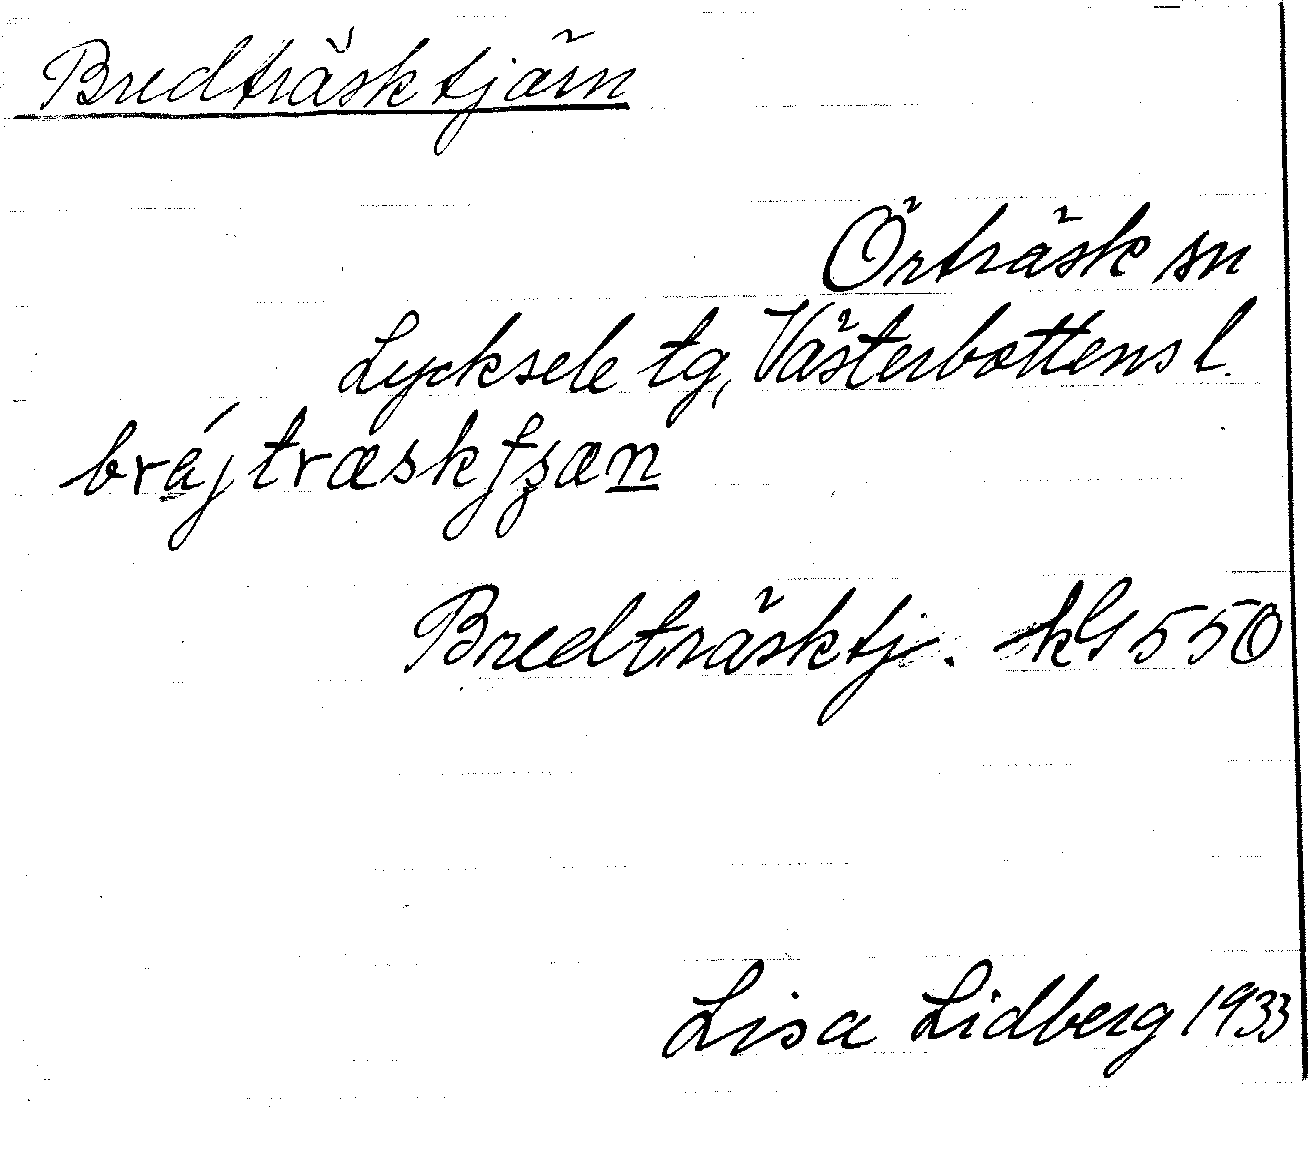 Bredträsktjärn
Örträsk sn
Lycksele tg, Västerbottens l.
Bredträsktj. kG 550
Lisa Lidberg 1933